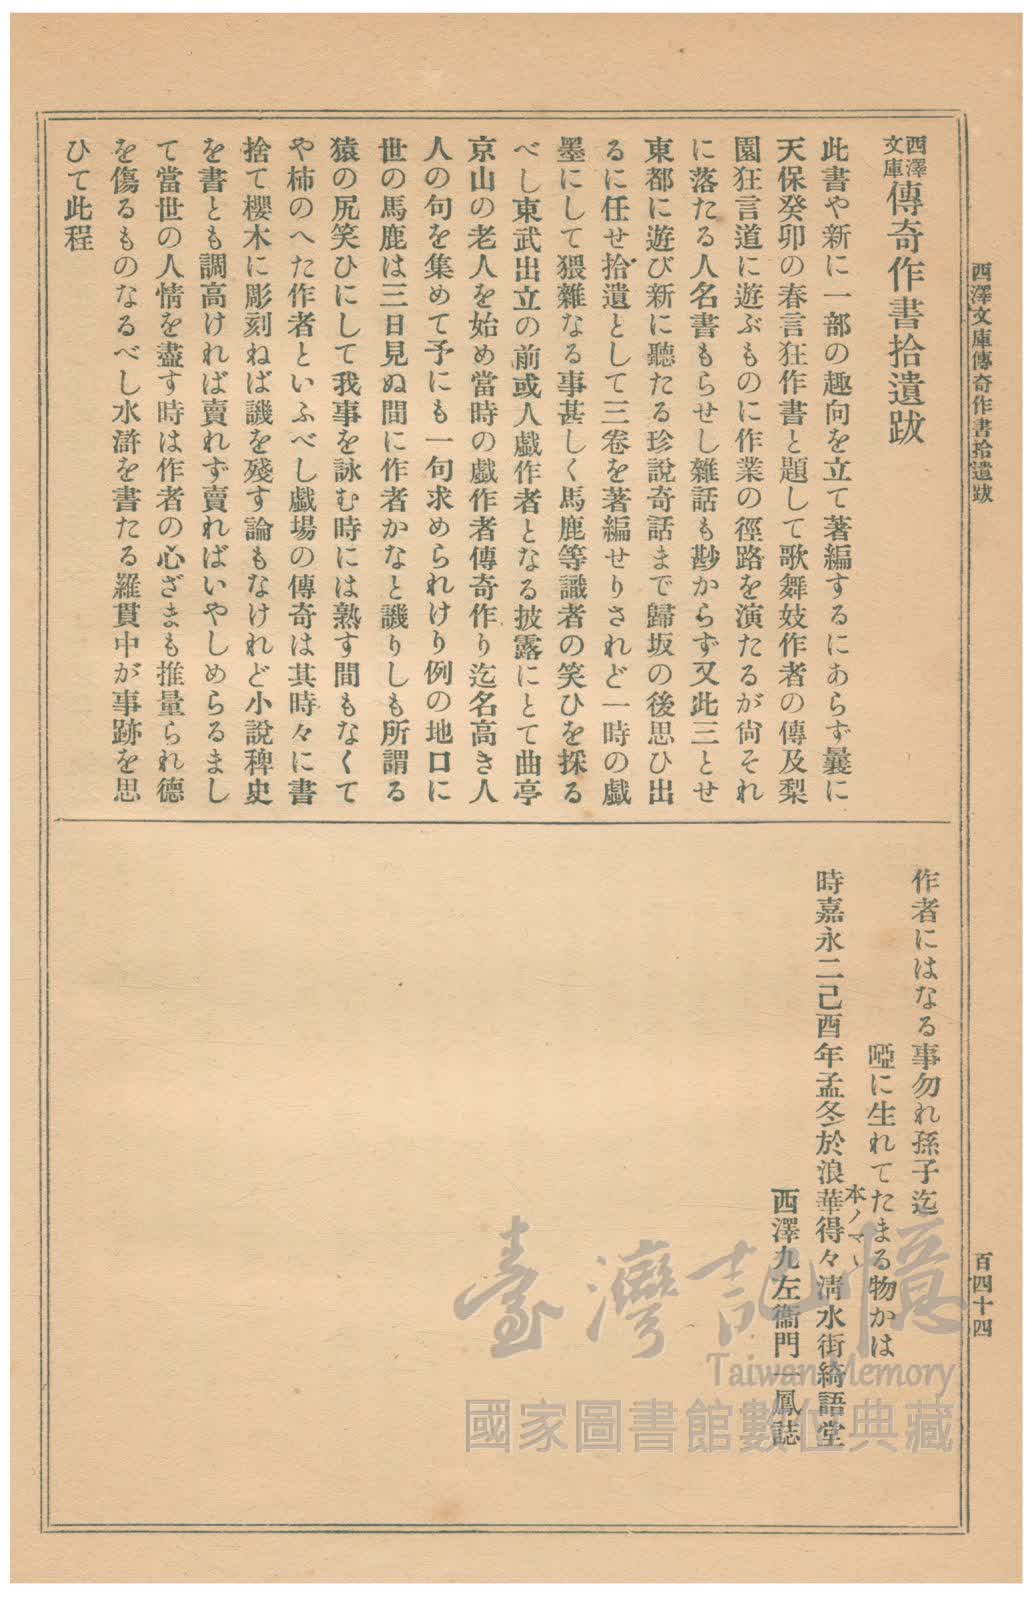 西澤文庫傳奇作書拾遺跋
百四十四
西澤文庫 傳奇作書拾遺跋
此書や新に一部の趣向を立て著編するにあらず曩に
天保癸卯の春言狂作書と題して歌舞妓作者の傳及梨
園狂言道に遊ぶものに作業の徑路を演たるが尙それ
に落たる人名書もらせし雜話も尠からず又此三とせ
東都に遊び新に聽たる珍說奇話まで歸坂の後思ひ出
るに任せ拾遺として三卷を著編せりされど一時の戲
墨にして猥雜なる事甚しく馬鹿等識者の笑ひを採る
べし東武出立の前或人戲作者となる披露にとて曲亭
京山の老人を始め當時の戲作者傳奇作り迄名高き人
人の句を集めて予にも一句求められけり例の地口に
世の馬鹿は三日見ぬ間に作者かなと譏りしも所謂る
猿の尻笑ひにして我事を詠む時には熟す間もなくて
や柿のへた作者といふべし戲場の傳奇は其時々に書
捨て櫻木に彫刻ねば譏を殘す論もなけれど小說稗史
を書とも調高ければ賣れず賣ればいやしめらるまし
て當世の人情を盡す時は作者の心ざまも推量られ德
を傷るものなるべし水滸を書たる羅貫中が事跡を思
ひて此程
作者にはなる事勿れ孫子迄
啞に生れてたまる物かは
本ノマヽ
時嘉永二己酉年孟冬於浪華得々淸水街綺語堂
西澤九左衞門一鳳誌
臺灣記憶
Taiwan Memory
國家圖書館數位典藏